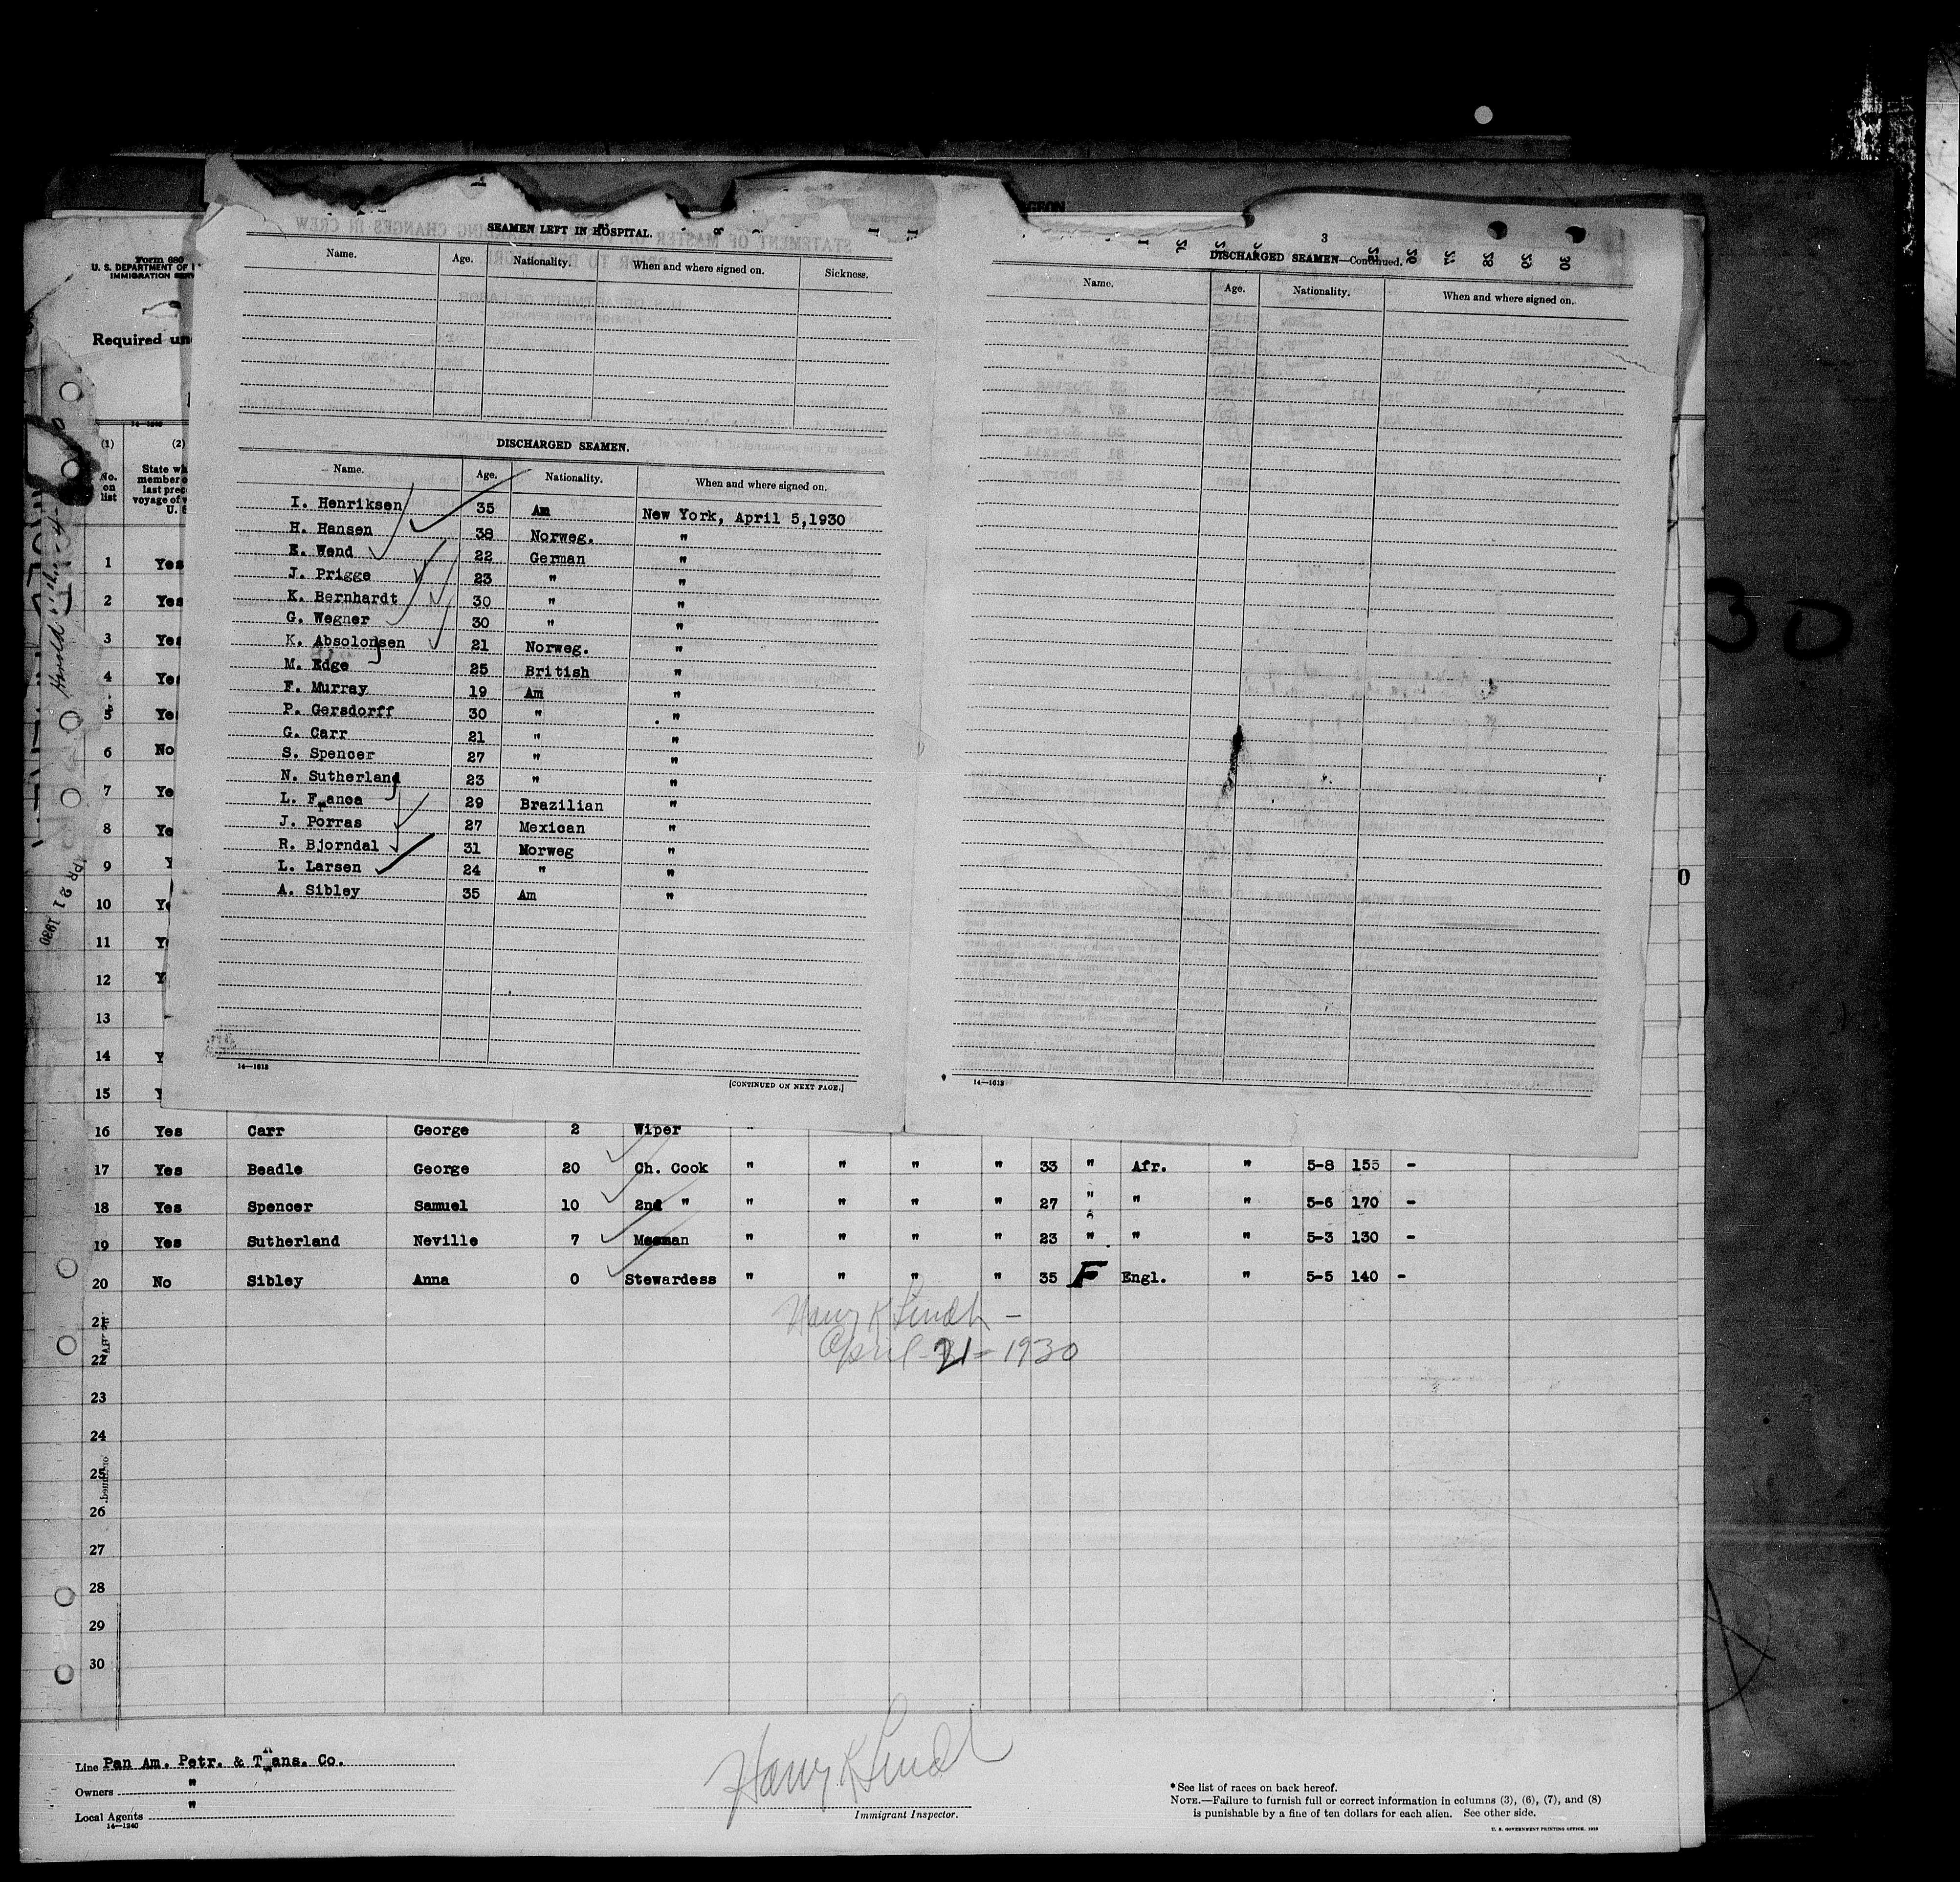 SEAMEN LEFT IN HOSPITAL.
Name. Age. Nationality. When and where signed on. Sickness.
DISCHARGED SEAMEN.
Name. Age. Nationality. When and where signed on.
I. Henriksen 35 Am New York, April 5,1930
H. Hansen 38 Norweg. "
E. Wend 22 German "
J. Prigge 23 " "
K. Bernhardt 30 " "
G. Wegner 30 " "
K. Absolonsen 21 Norweg. "
M. Edge 25 British "
F. Murray 19 Am "
P. Gersdorff 30 " "
G. Carr 21 " "
S. Spencer 27 " "
N. Sutherland 23 " "
L. Franca 29 Brazilian "
J. Porras 27 Mexican "
R. Bjorndal 31 Norweg "
L. Larsen 24 " "
A. Sibley 35 Am "
14—1613
[CONTINUED ON NEXT PAGE.]
3
DISCHARGED SEAMEN—Continued.
Name. Age. Nationality. When and where signed on.
14—1613
Form 680
U. S. DEPARTMENT OF
IMMIGRATION SERV
Required un
14—1240
(1) (2)
No. on list
State wh
member o
last prec
voyage of v
U. S
1 Yes
2 Yes
3 Yes
4 Yes
5 Ye
6 No
7 Ye
8 Ye
9 Y
10 Ye
11 Y
12 Y
13
14 Y
15 Y
16 Yes Carr George 2 Wiper "
17 Yes Beadle George 20 Ch. Cook " " " " 33 " Afr. " 5-8 155 -
18 Yes Spencer Samuel 10 2nd " " " " " 27 " " " 5-6 170 -
19 Yes Sutherland Neville 7 Messman " " " " 23 " " " 5-3 130 -
20 No Sibley Anna 0 Stewardess " " " " 35 F Engl. " 5-5 140 -
21
Harry K Lindl -
22
April 21 = 1930
23
24
25
26
27
28
29
30
Line Pan Am. Petr. & Trans. Co.
Owners "
Local Agents "
14—1240
Harry K Lindl
Immigrant Inspector.
*See list of races on back hereof.
NOTE.—Failure to furnish full or correct information in columns (3), (6), (7), and (8)
is punishable by a fine of ten dollars for each alien. See other side.
U. S. GOVERNMENT PRINTING OFFICE. 1928
30